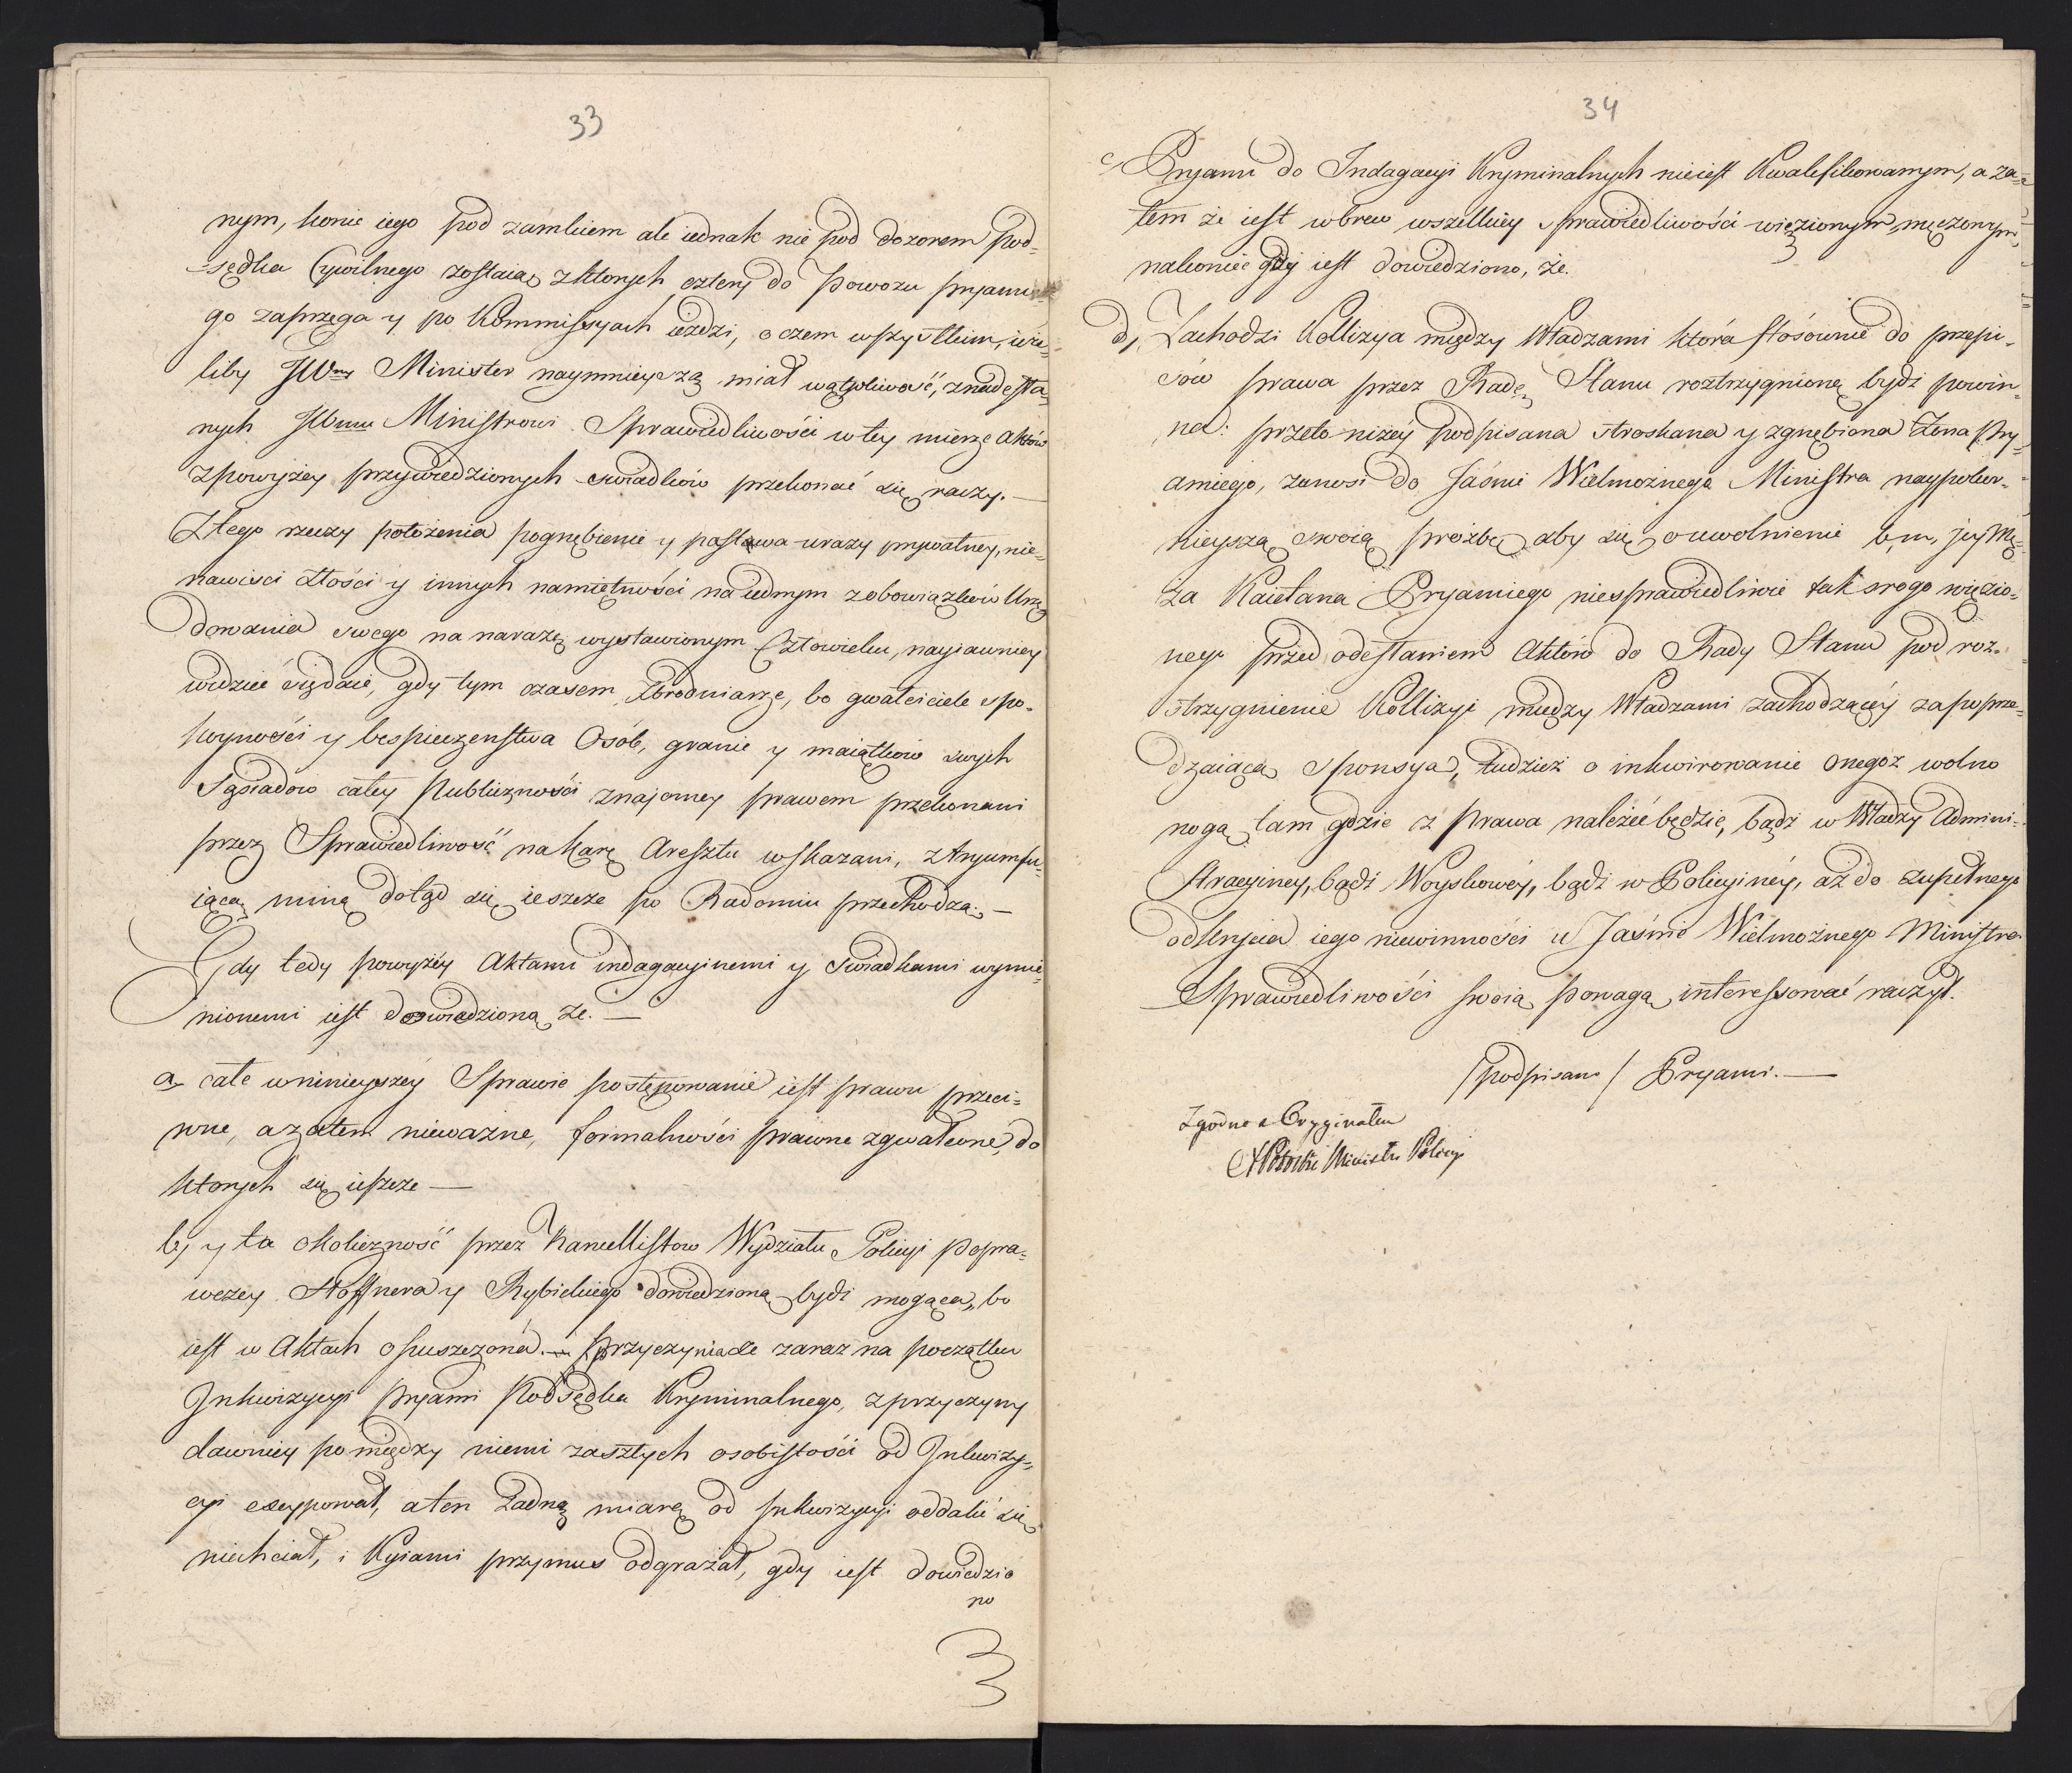 33
nym, konie iego pod zamkiem ale iednak nie pod dozorem Pod-
sędka Cywilnego zostaią z ktorych cztery do Powozu pryami-
go zaprzęga y po Kommissyach ieździ, o czem wszystkiem, ieże-
liby JWny Minister naymnieyszą miał wątpliwość, z nadesła-
nych JWmu Ministrowi Sprawiedliwości w tey mierze Aktów
z powyżey przywiedzionych swiadków przekonać się raczy.—
Z tego rzeczy położenia pognębienie y pastwa urazy prywatney, nie-
nawisci złości y innych namiętności na iednym z obowiązków Urzę
dowania swego na narazę wystawionym Człowieku, nayiawniey
widzieć się daie, gdy tym czasem Zbrodniarze, bo gwałciciele spo-
koyności y bespieczenstwa Osób, granic y maiątków swych
Sąsiadów całey Publiczności znajomey prawem przekonani
przez Sprawiedliwość na karę Aresztu wskazani, z tryumfu-
iącą miną dotąd się ieszcze po Radomiu przechodzą.—
Gdy tedy powyżey Aktami indagacyinemi y Swiadkami wymie-
nionemi iest dowiedzioną że.—
a, całe w ninieyszéy Sprawie postępowanie iest prawu przeci-
wne, a zatem nieważne, formalności prawne zgwałcone, do
ktorych się ieszcze—
b, y ta okoliczność przez Kancellistow Wydziału Policyi Popra-
wczey Hoffnera y Rybickiego dowiedzioną bydź mogąca, bo
iest w Aktach opuszczona.— przyczynia że zaraz na początku
Inkwizycyi Pryami Podsędka Kryminalnego, z przyczyny
dawniey pomiędzy niemi zaszłych osobistości od Inkwizy-
cyi excypował, a ten żadną miarą od Inkwizycyi oddalić się
niechciał, i Kyiami przymus odgrażał, gdy iest dowiedzio
no
34
c, Pryami do Indagacyi Kryminalnych nieiest Kwalifikowanym, a za-
tem że iest wbrew wszelkiéy sprawiedliwości więzionym, męczonym,
nakoniec gdy iest dowiedziono, że.
d, Zachodzi Kollizya między Władzami która stósownie do przepi-
sów prawa przez Radę Stanu roztrzygnioną bydź powin-
na: przeto niżéy podpisana stroskana y zgnębiona Żona Pry-
amiego, zanosi do Jaśnie Wielmożnego Ministra naypokor-
nieyszą swoią prożbę aby się o uwolnienie b, m, jey Mę-
ża Kaietana Pryamiego niesprawiedliwie tak srogo więzio-
nego przed odesłaniem Aktów do Rady Stanu pod roz-
strzygnienie Kollizyi między Władzami zachodzącéy za poprze-
dzaiącą sponsyą, tudzież o inkwirowanie onegoż wolno
nogą tam gdzie z prawa należéć będzie, bądź w Władzy Admini-
stracyiney, bądź Woyskowéy, bądź w Policyinéy, aż do zupełnego
odkrycia iego niewinności u Jaśnie Wielmożnego Ministra
Sprawiedliwości swoią powagą interessować raczył.
/podpisano/ Pryami.—
Zgodno z Oryginałem
APotocki Ministr Policyi